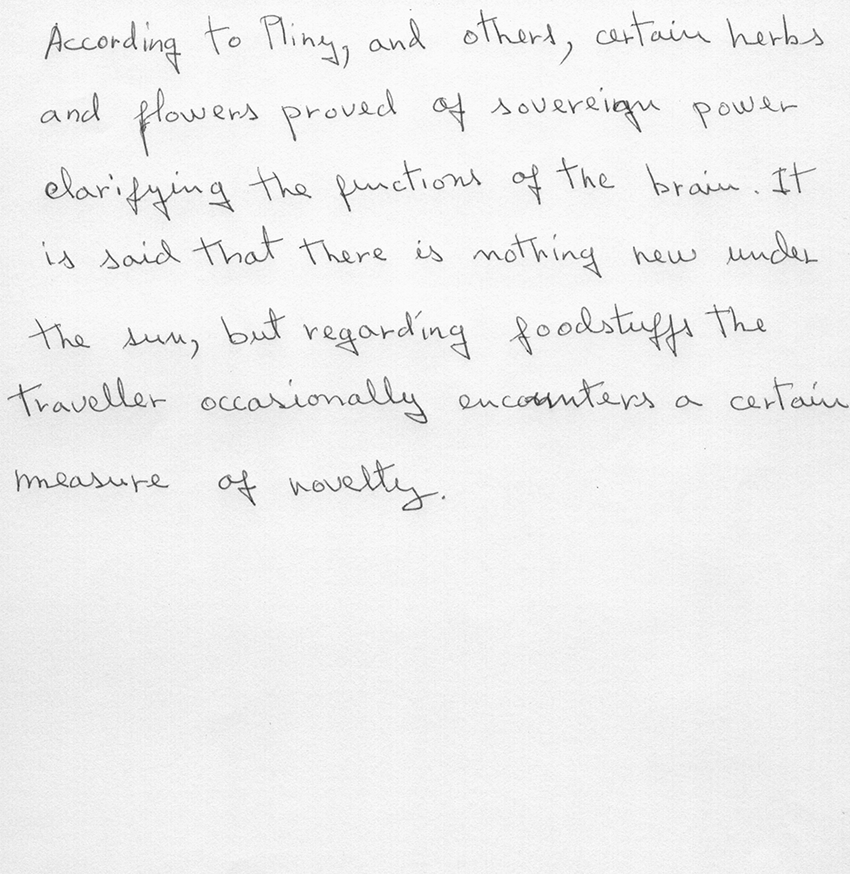 According to Pliny, and others, certain herbs
and flowers proved of sovereign power
clarifying the functions of the brain. It
is said that there is nothing new under
the sun, but regarding foodstuffs the
traveller occasionally encounters a certain
measure of novelty.